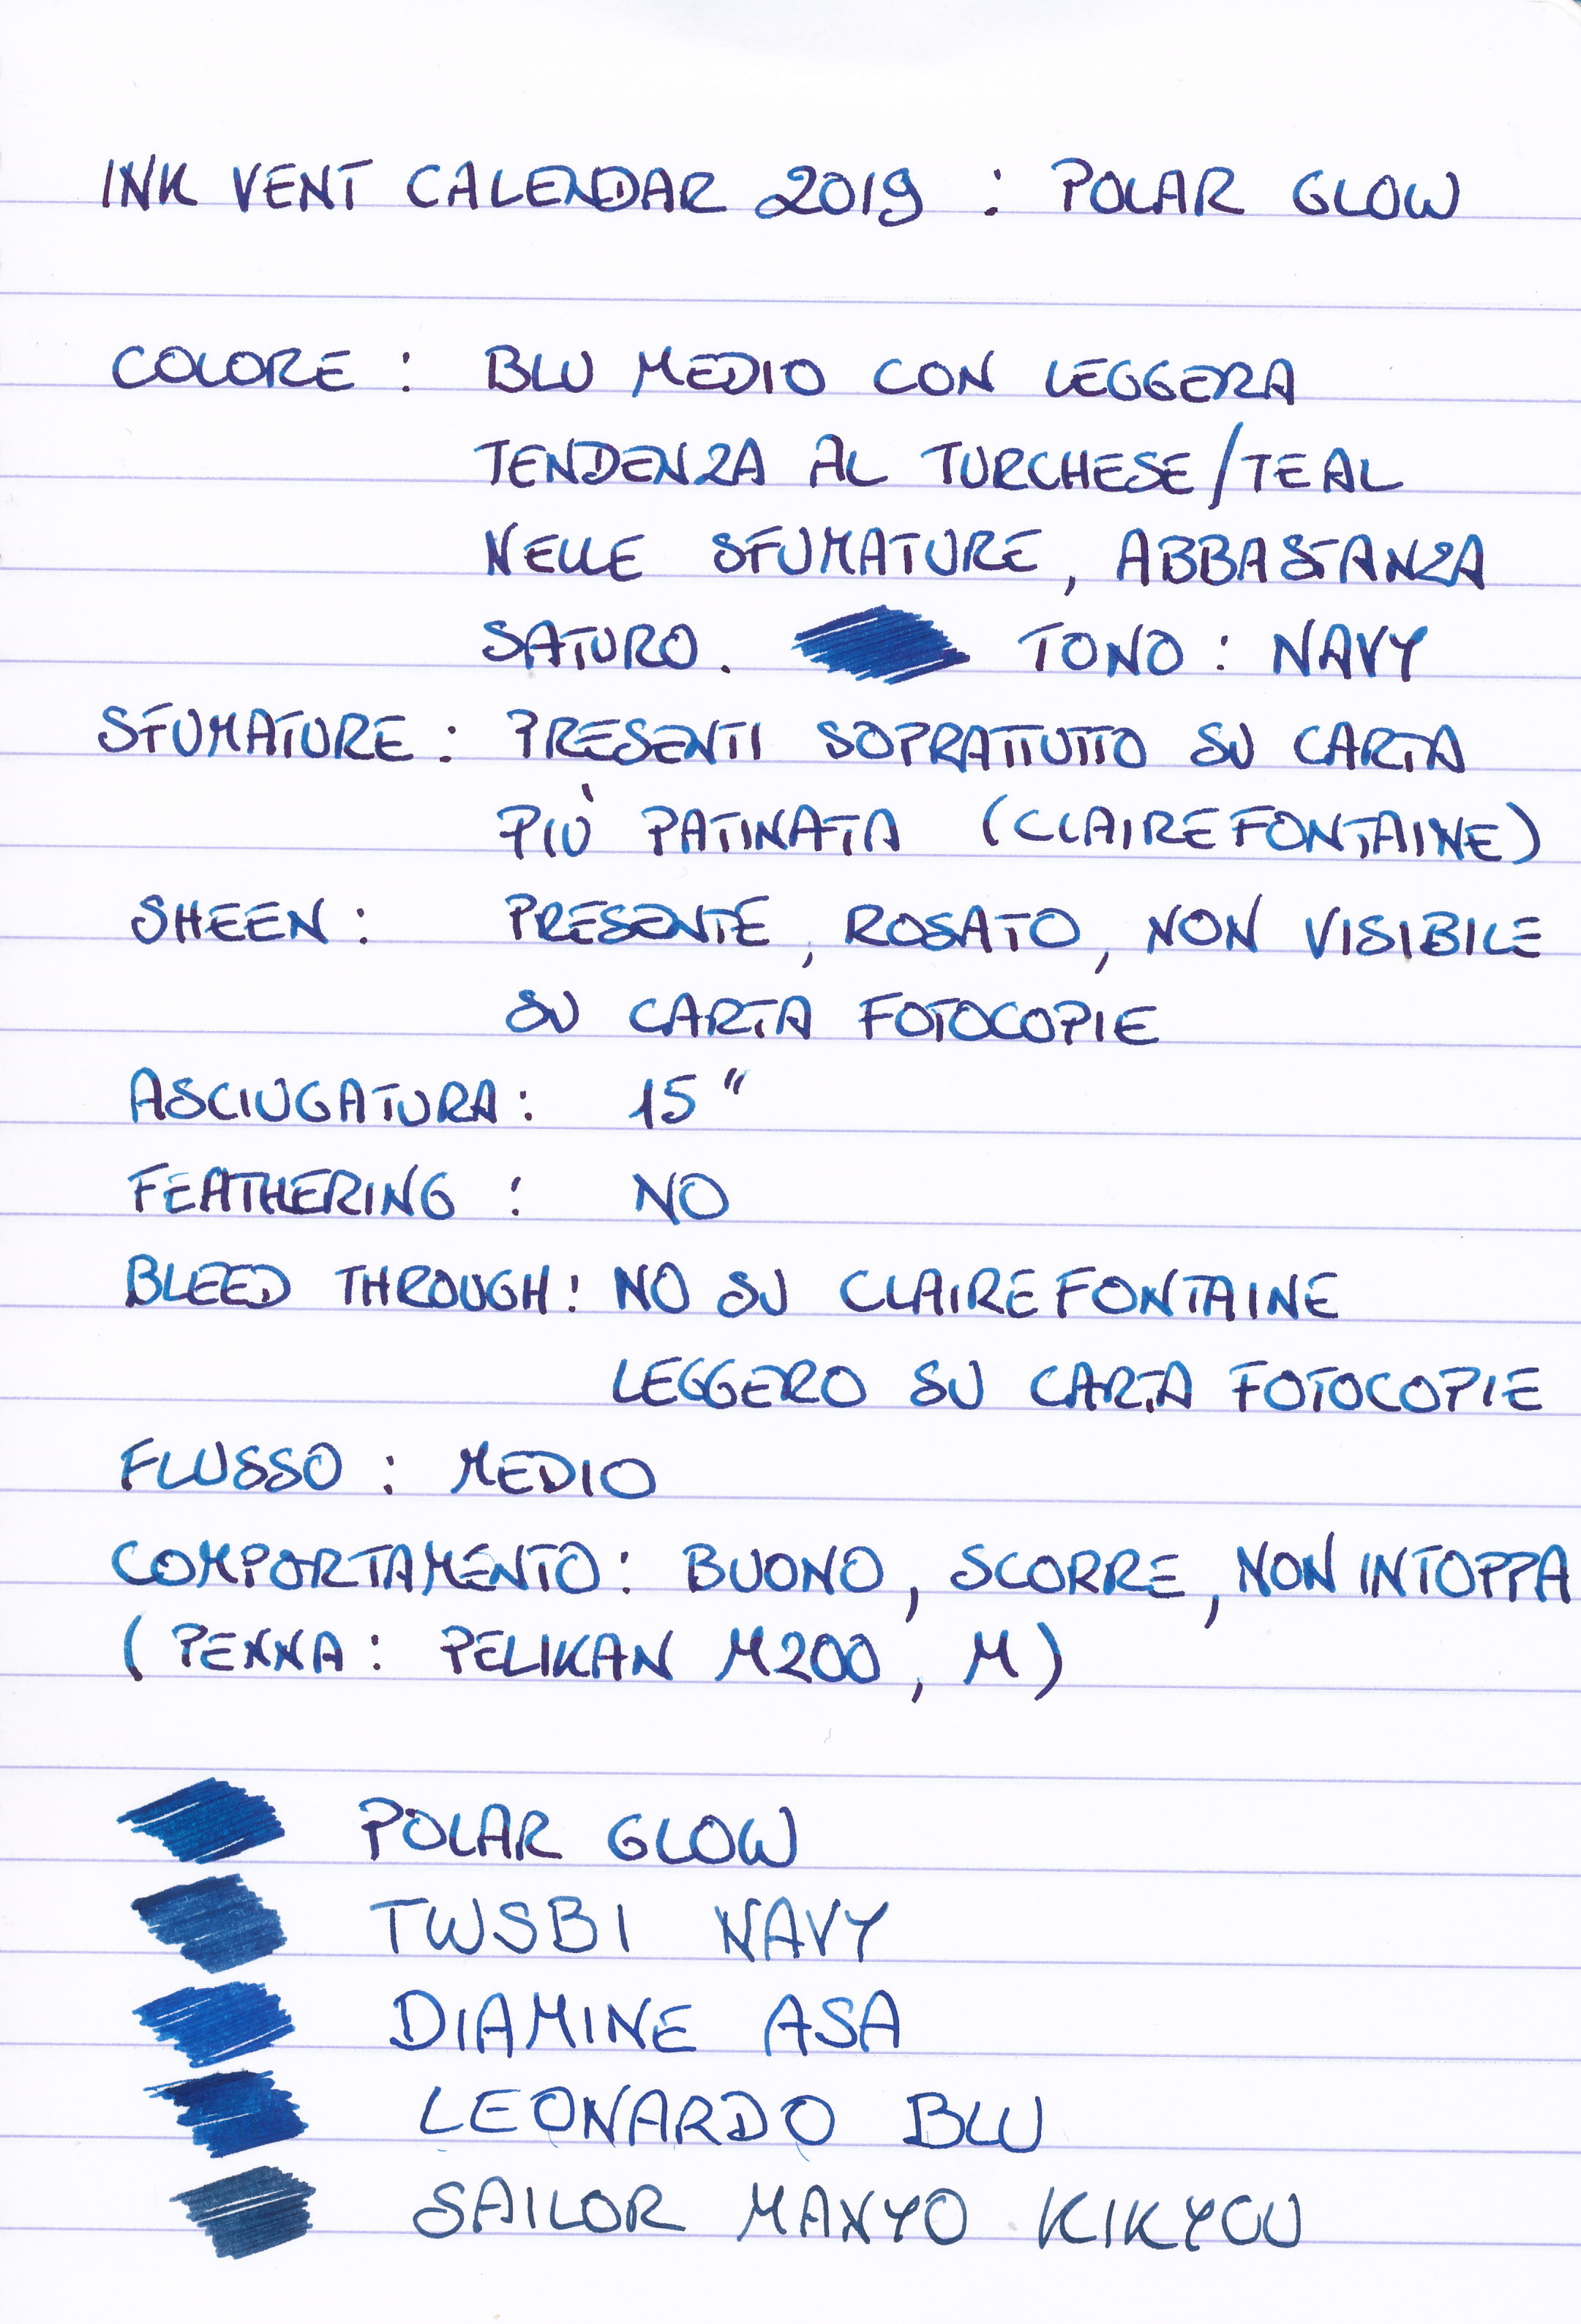 INK VENT CALENDAR 2019 : POLAR GLOW
COLORE : BLU MEDIO CON LEGGERA
TENDENZA AL TURCHESE/TEAL
NELLE SFUMATURE, ABBASTANZA
SATURO. TONO : NAVY
SFUMATURE : PRESENTI SOPRATTUTTO SU CARTA
PIÙ PATINATA (CLAIREFONTAINE)
SHEEN : PRESENTE, ROSATO, NON VISIBILE
SU CARTA FOTOCOPIE
ASCIUGATURA : 15"
FEATHERING : NO
BLEED THROUGH : NO SU CLAIREFONTAINE
LEGGERO SU CARTA FOTOCOPIE
FLUSSO : MEDIO
COMPORTAMENTO : BUONO, SCORRE, NON INTOPPA
(PENNA : PELIKAN M200, M)
POLAR GLOW
TWSBI NAVY
DIAMINE ASA
LEONARDO BLU
SAILOR MANYO KIKYOU